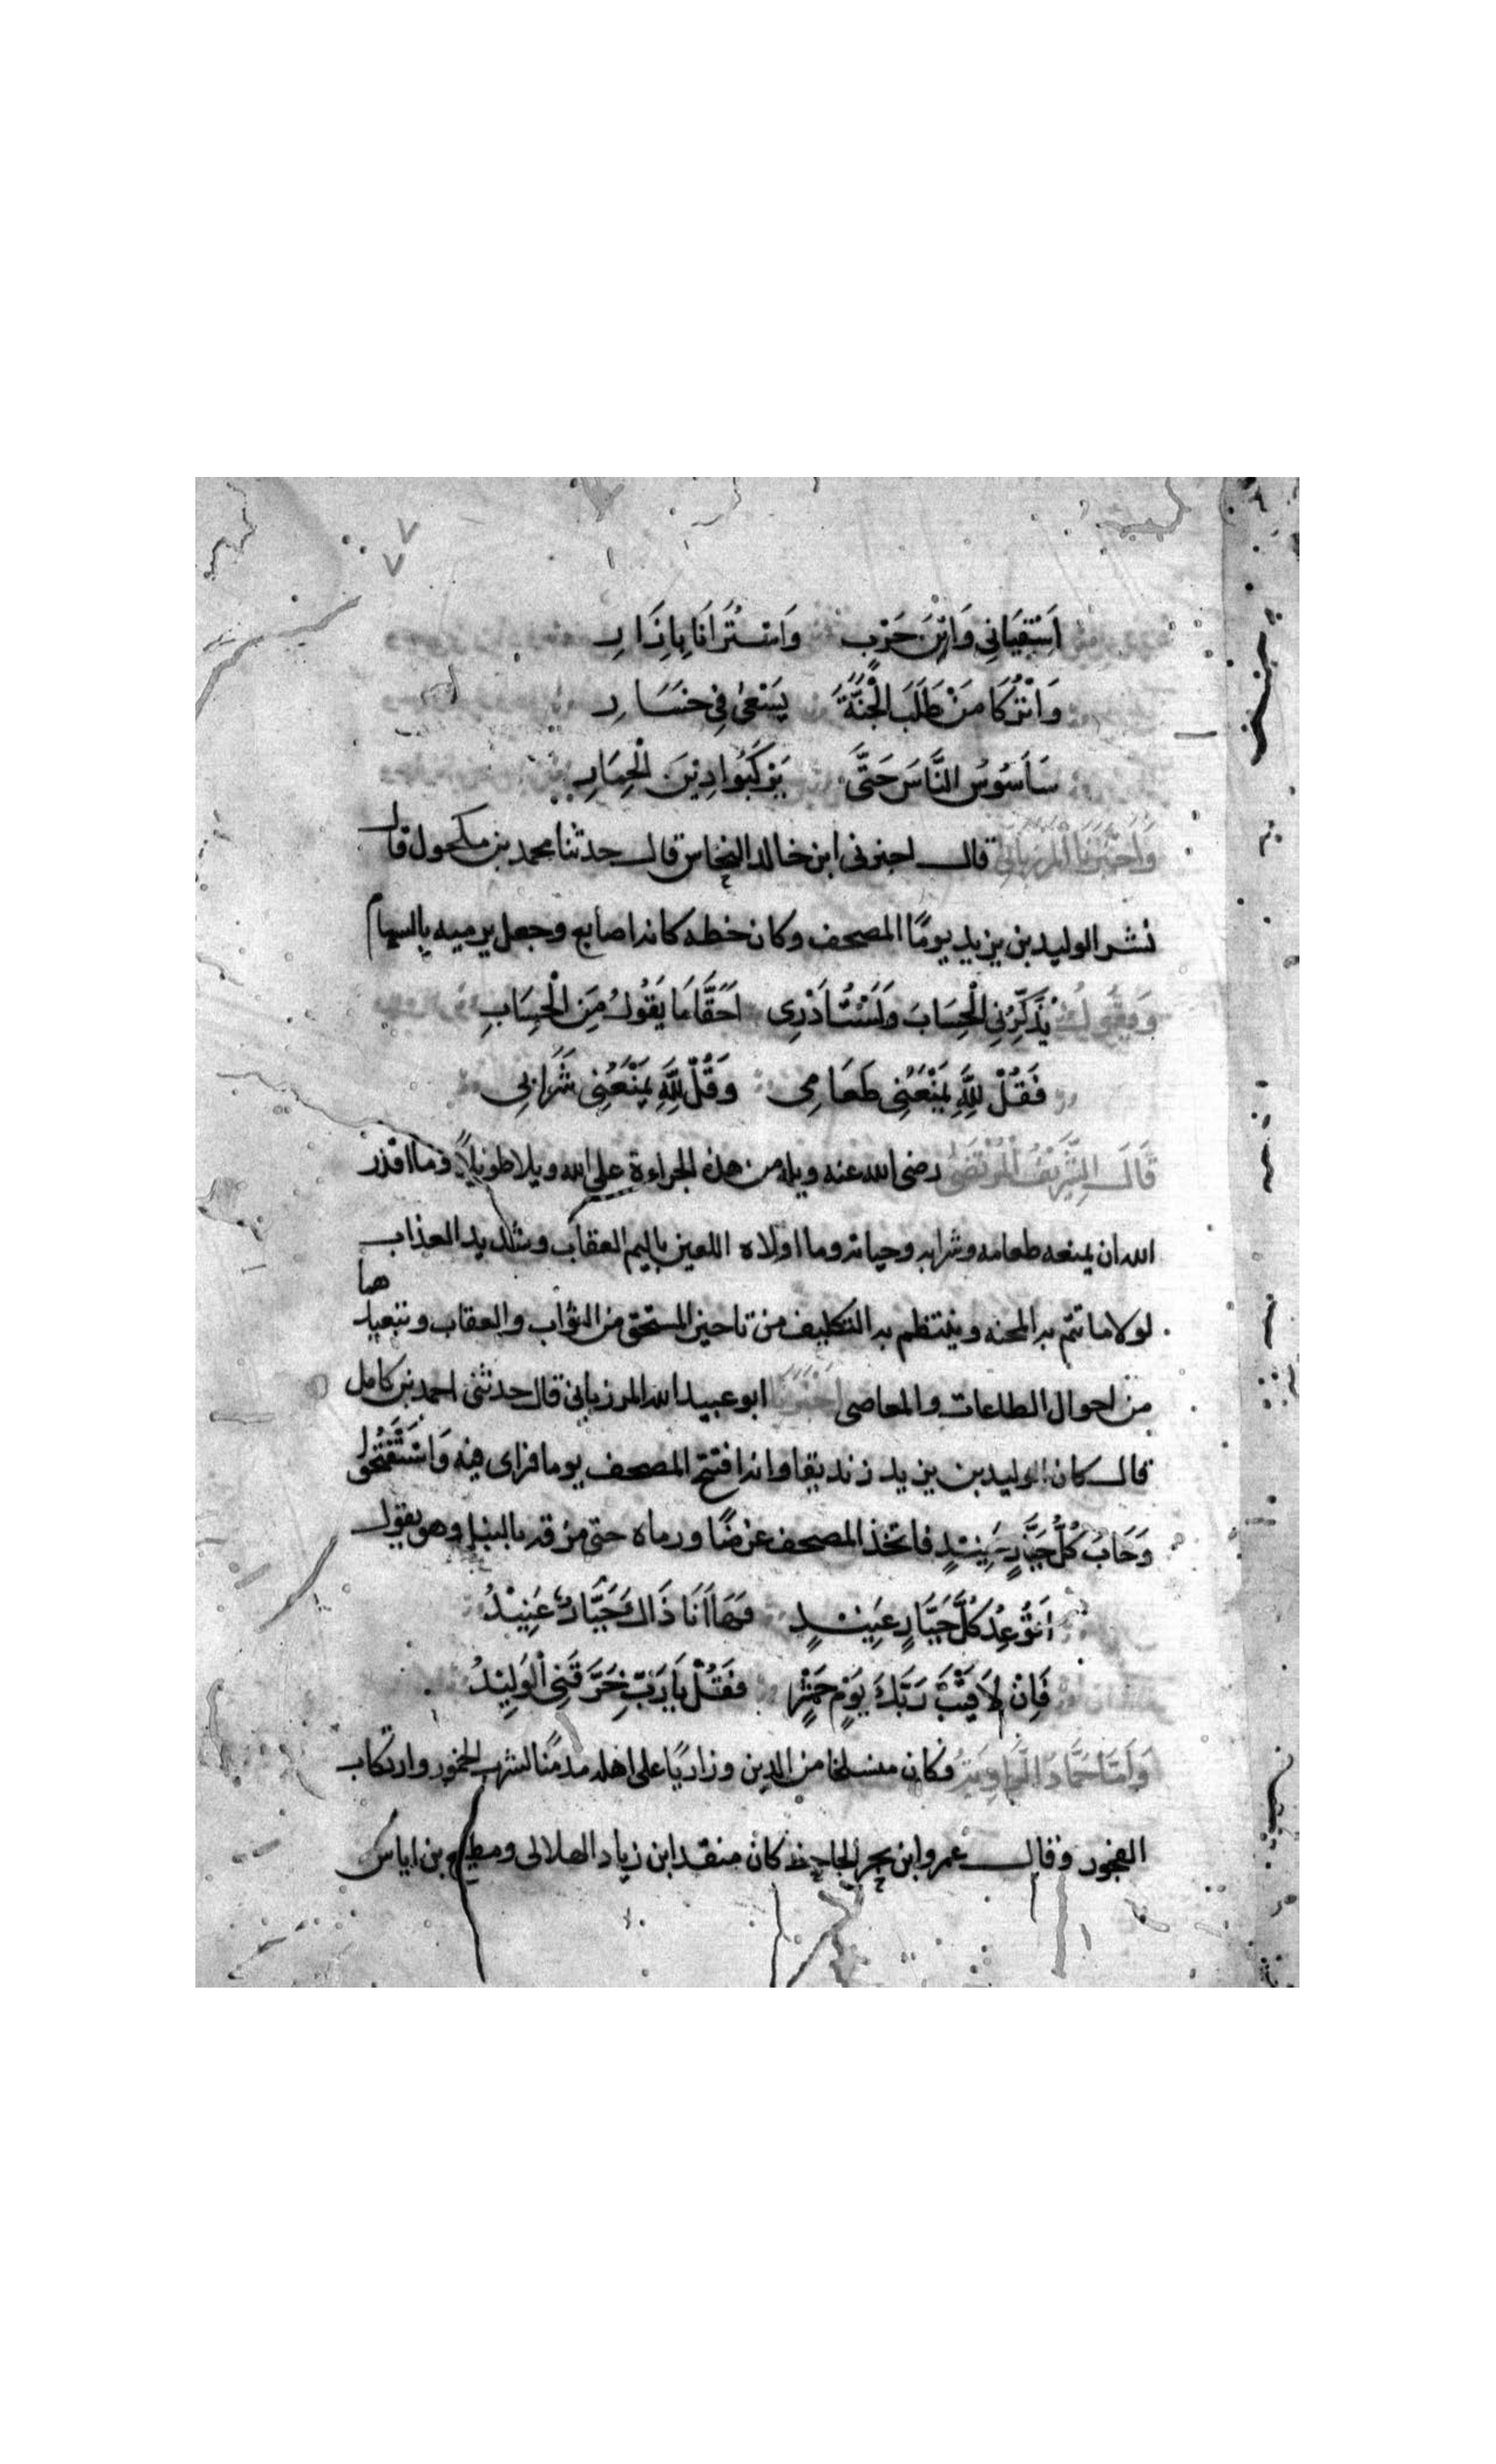 اَسْقِيَانِي وَابْنَ حَرْبٍ وَاسْتُرَانَا بِاِزَارِ
وَاتْرُكَا مَنْ طَلَبَ الْجَنَّةَ يَسْعَى فِي خَسَارِ
سَاَسُوسُ النَّاسَ حَتَّى يَرْكَبُوا دِيْنَ الْحِمَارِ
وَاَخْبَرَنَا الْمَرْزُبَانِيُّ قال اخبرنى ابن خالد النخاس قال حدثنا محمد بن مكحول قال
نشر الوليد بن يزيد يومًا المصحف وكان خطه كانه اصابع وجعل يرميه بالسهام
وَيَقُولُ يُذَكِّرُنِي الْحِسَابَ وَلَسْتُ اَدْرِى اَحَقًّا مَا يَقُولُ مِنَ الْحِسَابِ
فَقُلْ لِلَّهِ يَمْنَعُنِى طَعَامِى وَقُلْ لِلَّهِ يَمْنَعُنِى شَرَابِى
قَالَ الشَّرِيْفُ الْمُرْتَضَى رضى الله عنه ويله من هذه الجراءة على الله ويلا طويلًا وما اقذر
الله ان يمنعه طعامه وشرابه وحياته وما اولاه اللعين باليم العقاب وشديد العذاب
لولا ما تتم به المحنه وينتظم به التكليف من تاخير المستحق من الثواب والعقاب وتبعيد هما
من احوال الطاعات والمعاصى اَخْبَرَنَا ابو عبيد الله المرزبانى قال حدثنى احمد بن كامل
قال كان الوليد بن يزيد زنديقا وانه افتتح المصحف يوما فراى فيه وَاسْتَفْتَحُوا
وَخَابَ كُلُّ جَبَّارٍ عَنِيْدٍ فاتخذ المصحف غرضًا ورماه حتى مزقه بالنبل وهو يقول
اَتُوْعِدُ كُلَّ جَبَّارٍ عَنِيْدٍ فَهَا اَنَا ذَاكَ جَبَّارٌ عَنِيْدُ
فَاِنْ لَاقَيْتَ رَبَّكَ يَوْمَ حَشْرٍ فَقُلْ يَا رَبِّ خَرَّقَنِى الْوَلِيْدُ
وَاَمَّا حَمَّادُ الرَّاوِيَةُ فكان منسلخا من الدين وزاريًا على اهله مدمنًا لشرب الخمور وارتكاب
الفجور وقال عمرو ابن بحر الجاحظ كان منقد ابن زياد الهلالى ومطيع بن اياس